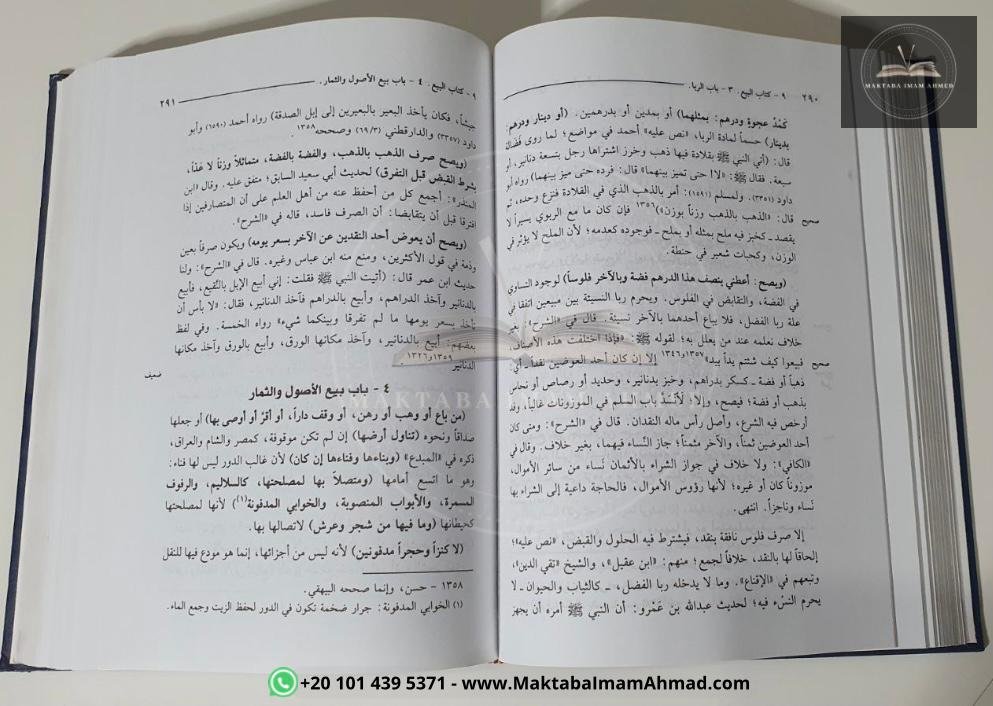 ٢٩٠ ٩ - كتاب البيع. ٣ - باب الربا.
كَمُدّ عجوة ودرهم: بمثلهما) أو بمدين أو بدرهمين. (أو دينار ودرهم:
بدينار) حسماً لمادة الربا، «نص عليه» أحمد في مواضع؛ لما روى فَضَالة
قال: (أتي النبي ﷺ بقلادة فيها ذهب وخرز اشتراها رجل بتسعة دنانير، أو
سبعة. فقال ﷺ: «لا! حتى تميز بينهما» قال: فرده حتى ميز بينهما) رواه أبو
داود (٣٣٥١). ولمسلم (١٥٩١): أمر بالذهب الذي في القلادة فنزع وحده، ثم
قال: «الذهب بالذهب وزناً بوزن»)١٣٥٦ فإن كان ما مع الربوي يسيراً لا
صحيح
يقصد ـ كخبز فيه ملح بمثله أو بملح ـ فوجوده كعدمه؛ لأن الملح لا يؤثر في
الوزن، وكحبات شعير في حنطة.
(ويصح: أعطني بنصف هذا الدرهم فضة وبالآخر فلوساً) لوجود التساوي
في الفضة، والتقابض في الفلوس. ويحرم ربا النسيئة بين مبيعين اتفقا في
علة ربا الفضل، فلا يباع أحدهما بالآخر نسيئة. قال في «الشرح» بغير
خلاف نعلمه عند من يعلل به؛ لقوله ﷺ: «فإذا اختلفت هذه الأصناف
فبيعوا كيف شئتم يداً بيد»١٣٥٧و١٣٤٦ إلا إن كان أحد العوضين نقداً ـ أي:
صحيح
ذهباً أو فضة ـ كسكر بدراهم، وخبز بدنانير، وحديد أو رصاص أو نحاس
بذهب أو فضة؛ فيصح، وإلا؛ لانسدّ باب السلم في الموزونات غالباً، وقد
أرخص فيه الشرع، وأصل رأس ماله النقدان. قال في «الشرح»: ومتى كان
أحد العوضين ثمناً، والآخر مثمناً؛ جاز النَّساء فيهما، بغير خلاف. وقال في
«الكافي»: ولا خلاف في جواز الشراء بالأثمان نَساء من سائر الأموال،
موزوناً كان أو غيره؛ لأنها رؤوس الأموال، فالحاجة داعية إلى الشراء بها
نَساء وناجزاً. انتهى.
إلا صرف فلوس نافقة بنقد، فيشترط فيه الحلول والقبض، «نص عليه»؛
إلحاقاً لها بالنقد، خلافاً لجمع؛ منهم: «ابن عقيل»، والشيخ «تقي الدين»،
وتبعهم في «الإقناع». وما لا يدخله ربا الفضل، ـ كالثياب والحيوان ـ لا
يحرم النَّسْء فيه؛ لحديث عبدالله بن عَمْرو: أن النبي ﷺ أمره أن يجهز
٩ - كتاب البيع. ٤ - باب بيع الأصول والثمار. ٢٩١
جيشاً، فكان يأخذ البعير بالبعيرين إلى إبل الصدقة) رواه أحمد (٦٥٩٠) وأبو
داود (٣٣٥٧) والدارقطني (٦٩/٣) وصححه١٣٥٨.
(ويصح صرف الذهب بالذهب، والفضة بالفضة، متماثلاً وزناً لا عَدّاً،
بشرط القبض قبل التفرق) لحديث أبي سعيد السابق؛ متفق عليه. وقال «ابن
المنذر»: أجمع كل من أحفظ عنه من أهل العلم على أن المتصارفين إذا
افترقا قبل أن يتقابضا: أن الصرف فاسد، قاله في «الشرح».
(ويصح أن يعوض أحد النقدين عن الآخر بسعر يومه) ويكون صرفاً بعين
وذمة في قول الأكثرين، ومنع منه ابن عباس وغيره. قال في «الشرح»: ولنا
حديث ابن عمر قال: (أتيت النبي ﷺ فقلت: إني أبيع الإبل بالبقيع، فأبيع
بالدنانير وآخذ الدراهم، وأبيع بالدراهم فآخذ الدنانير، فقال: «لا بأس أن
تأخذ بسعر يومها ما لم تفرقا وبينكما شيء» رواه الخمسة. وفي لفظ
بعضهم: أبيع بالدنانير، وآخذ مكانها الورق، وأبيع بالورق وآخذ مكانها
الدنانير ١٣٥٩و١٣٢٦.
ضعيف
٤ - باب بيع الأصول والثمار
(من باع أو وهب أو رهن، أو وقف داراً، أو أقرّ أو أوصى بها) أو جعلها
صداقاً ونحوه (تناول أرضها) إن لم تكن موقوفة، كمصر والشام والعراق،
ذكره في «المبدع» (وبناءها وفناءها إن كان) لأن غالب الدور ليس لها فناء:
وهو ما اتسع أمامها (ومتصلاً بها لمصلحتها، كالسلاليم، والرفوف
المسمرة، والأبواب المنصوبة، والخوابي المدفونة(١)) لأنها لمصلحتها
كحيطانها (وما فيها من شجر وعرش) لاتصالها بها.
(لا كنزاً وحجراً مدفونين) لأنه ليس من أجزائها، إنما هو مودع فيها للنقل
١٣٥٨ - حسن، وإنما صححه البيهقي.
(١) الخوابي المدفونة: جرار ضخمة تكون في الدور لحفظ الزيت وجمع الماء.
MAKTABA IMAM AHMED
MAKTABA IMAM AHMED
+20 101 439 5371 - www.MaktabaImamAhmad.com